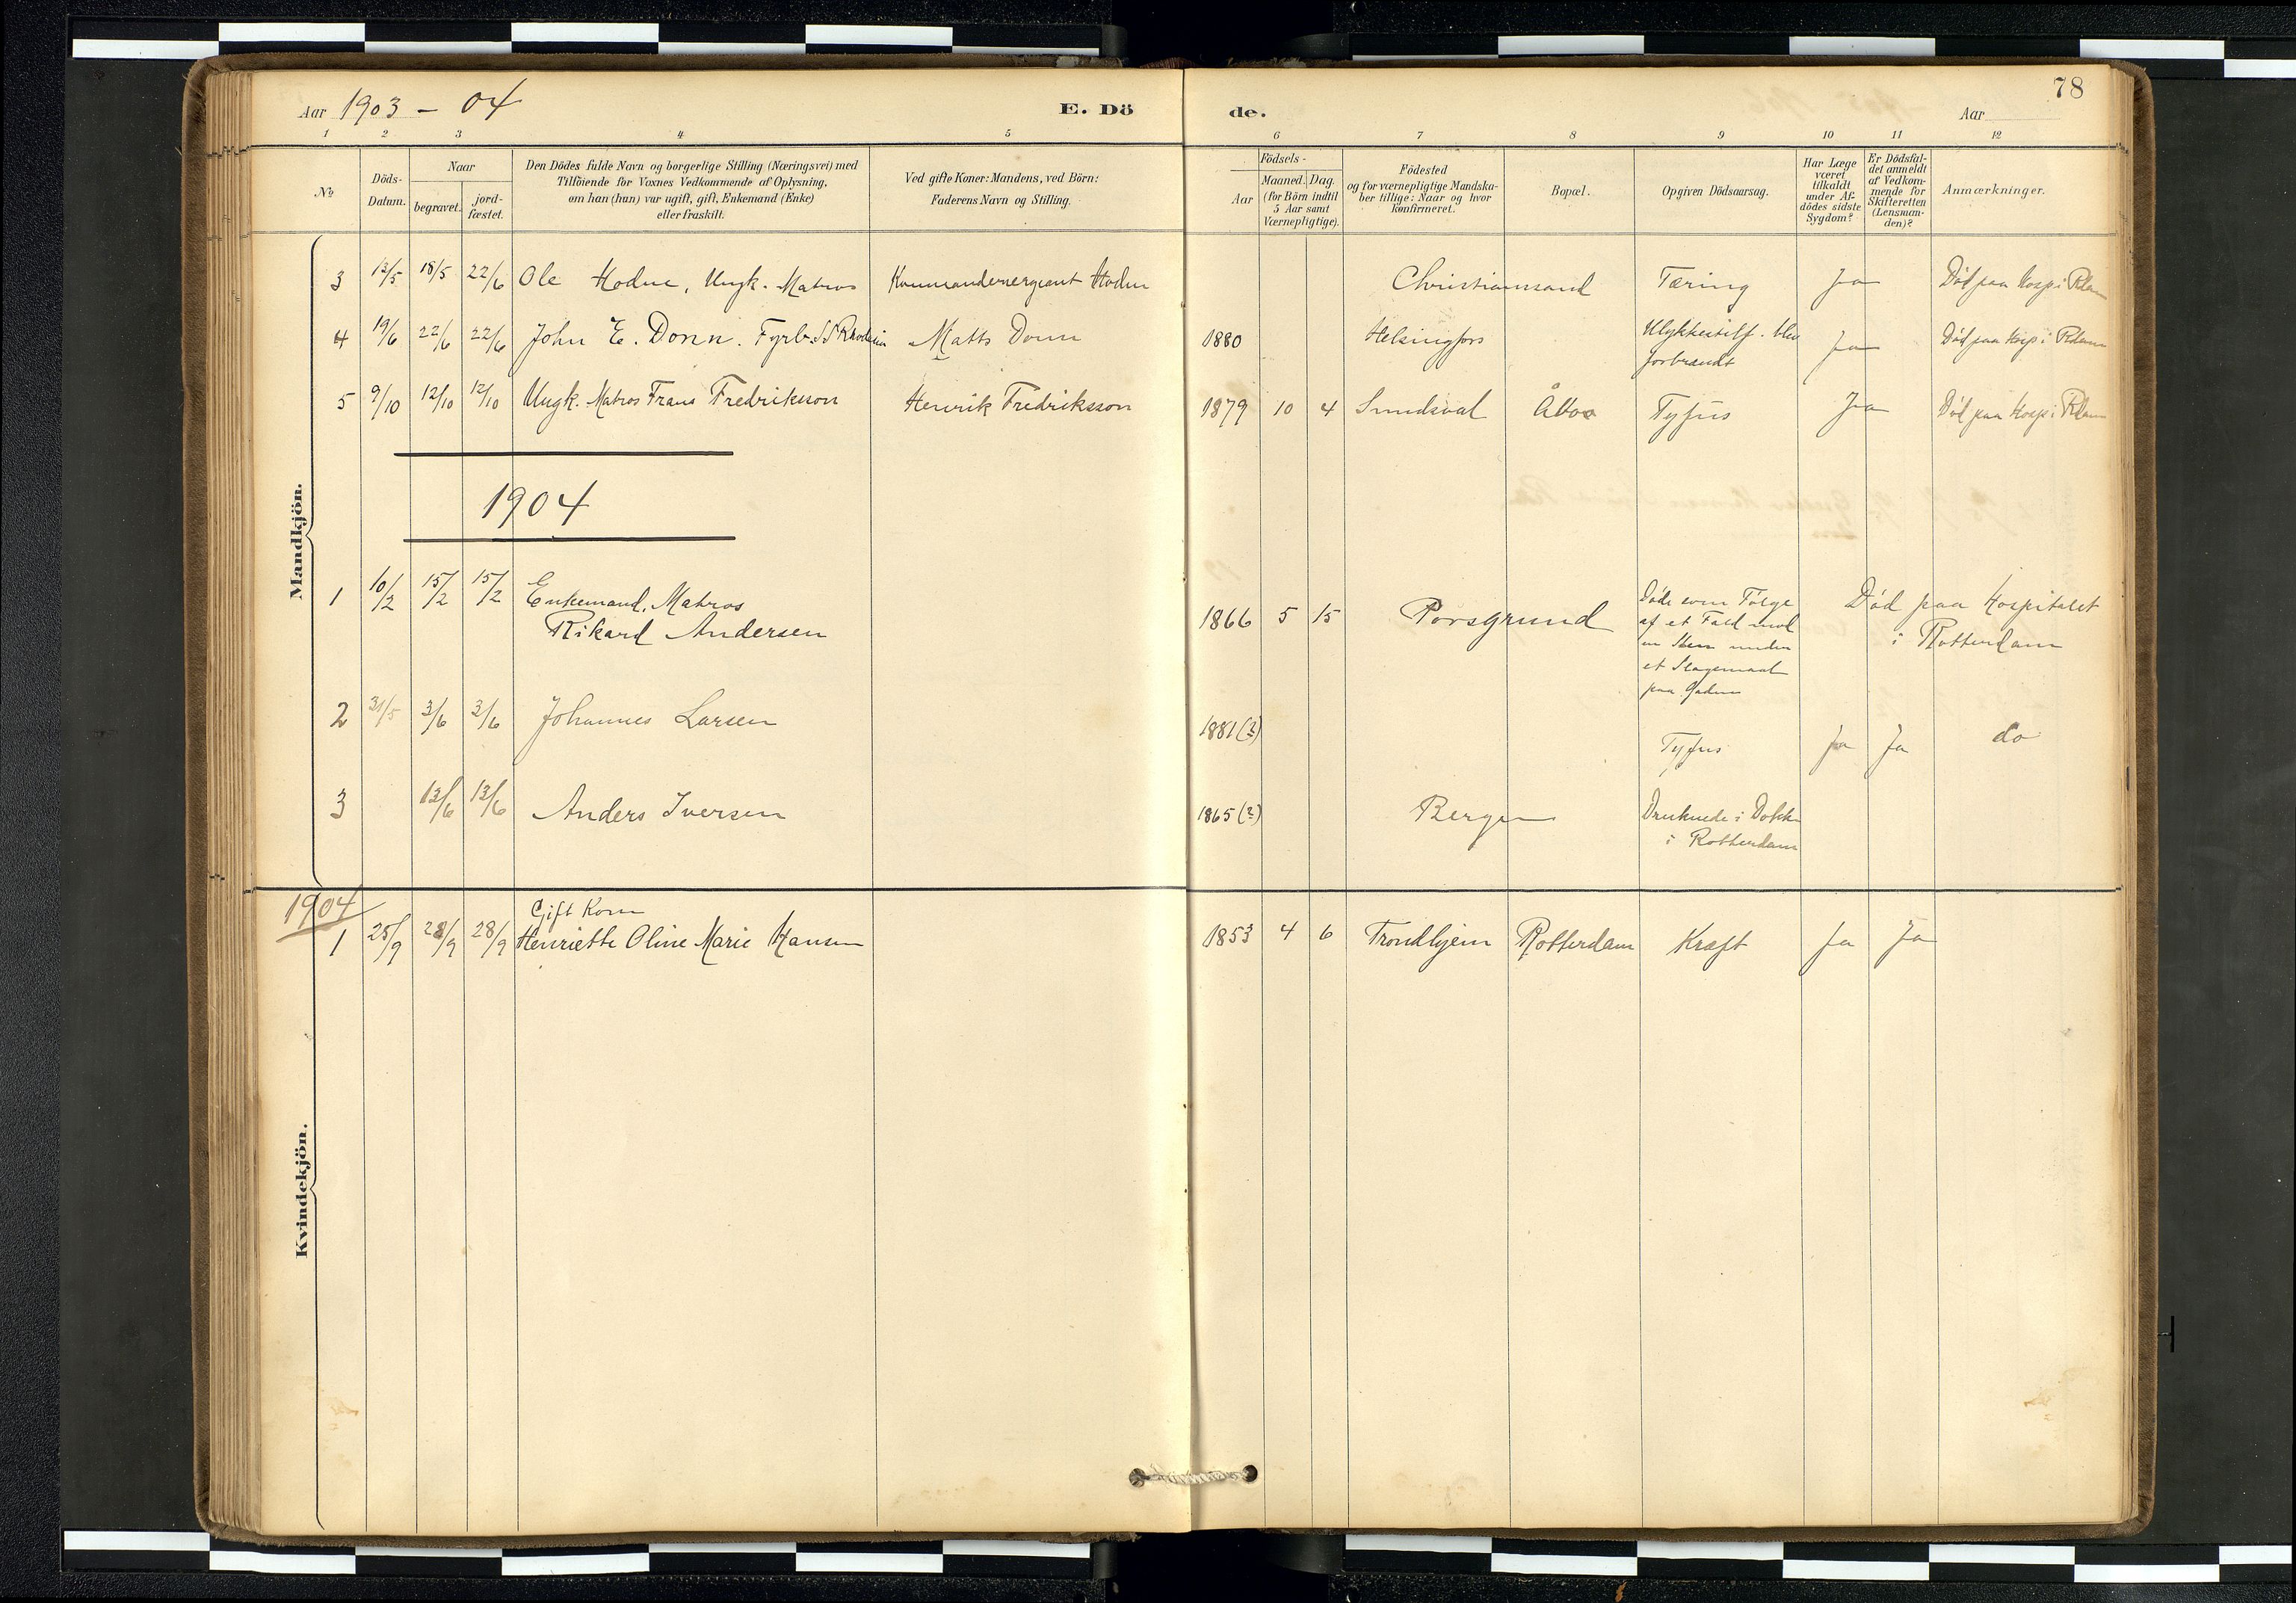 78
Aar 1903 - 04 E. Dö de. Aar
1 2 3 4 5 6 7 8 9 10 11 12
№
Döds-Datum.
Naar
begravet.
jord-fæstet.
Den Dödes fulde Navn og borgerlige Stilling (Næringsvei) med
Tilföiende for Voxnes Vedkommende af Oplysning,
om han (hun) var ugift, gift, Enkemand (Enke)
eller fraskilt.
Ved gifte Koner: Mandens, ved Börn:
Faderens Navn og Stilling.
Födsels-
Aar
Maaned. Dag.
(for Börn indtil
5 Aar samt
Værnepligtige).
Födested
og for værnepligtige Mandska-
ber tillige: Naar og hvor
konfirmeret.
Bopæl.
Opgiven Dödsaarsag.
Har Læge
været
tilkaldt
under Af-
dödes sidste
Sygdom?
Er Dödsfal-
det anmeldt
af Vedkom-
mende for
Skifteretten
(Lensman-
den)?
Anmærkninger.
Mandkjön.
3 13/5 18/5 22/6 Ole Hodne, Ungk. Matros Kommandersergeant Hodne Christianssand Tæring Ja Död paa Hosp i Rdam
4 19/6 22/6 22/6 John E. Donn. Fyrb. SS Rhodesia Matts Donn 1880 Helsingfors Ulykkestilf. blev
forbrændt Ja Död paa Hosp i Rdam
5 9/10 12/10 12/10 Ungk. Matros Frans Fredriksson Henrik Fredriksson 1879 10 4 Sundsval Åboo Tyfus Ja Död paa Hosp i Rdam
1904
1 10/2 15/2 15/2 Enkemand, Matros
Rikard Andersen 1866 5 15 Porsgrund
Döde som Fölge
af et Fald mod
en Sten under
et Slagsmaal
paa Gaden
Död paa Hospitalet
i Rotterdam
2 31/5 3/6 3/6 Johannes Larsen 1881(?) Tyfus Ja Ja do
3 13/6 13/6 Anders Iversen 1865(?) Bergen Druknede i Dokken
i Rotterdam
Kvindekjön.
1904
Gift Kone
1 25/9 28/9 28/9 Henriette Oline Marie Hansen 1853 4 6 Trondhjem Rotterdam Kræft Ja Ja